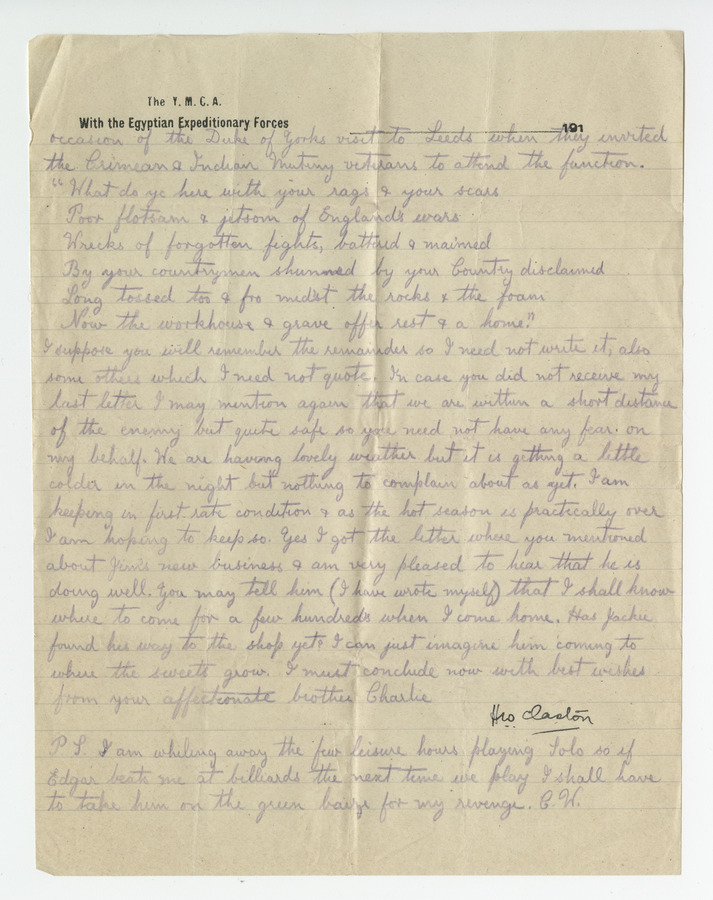 The Y. M. C. A.
With the Egyptian Expeditionary Forces
191
occasion of the Duke of Yorks visit to Leeds when they invited
the Crimean & Indian Mutiny veterans to attend the function.
"What do ye here with your rags & your scars
Poor flotsam & jetsom of England's wars
Wrecks of forgotten fights, battered & maimed
By your countrymen shunned by your Country disclaimed
Long tossed too & fro midst the rocks & the foam
Now the workhouse & grave offer rest & a home."
I suppose you will remember the remainder so I need not write it, also
some others which I need not quote. In case you did not receive my
last letter I may mention again that we are within a short distance
of the enemy but quite safe so you need not have any fear on
my behalf. We are having lovely weather but it is getting a little
colder in the night but nothing to complain about as yet. I am
keeping in first rate condition & as the hot season is practically over
I am hoping to keep so. Yes I got the letter where you mentioned
about Jim's new business & am very pleased to hear that he is
doing well. You may tell him (I have wrote myself) that I shall know
where to come for a few hundreds when I come home. Has Jackie
found his way to the shop yet? I can just imagine him coming to
where the sweets grow. I must conclude now with best wishes
from your affectionate brother Charlie
P S. I am whiling away the few leisure hours playing Solo so if
Edgar beats me at billiards the next time we play I shall have
to take him on the green baize for my revenge. C.W.